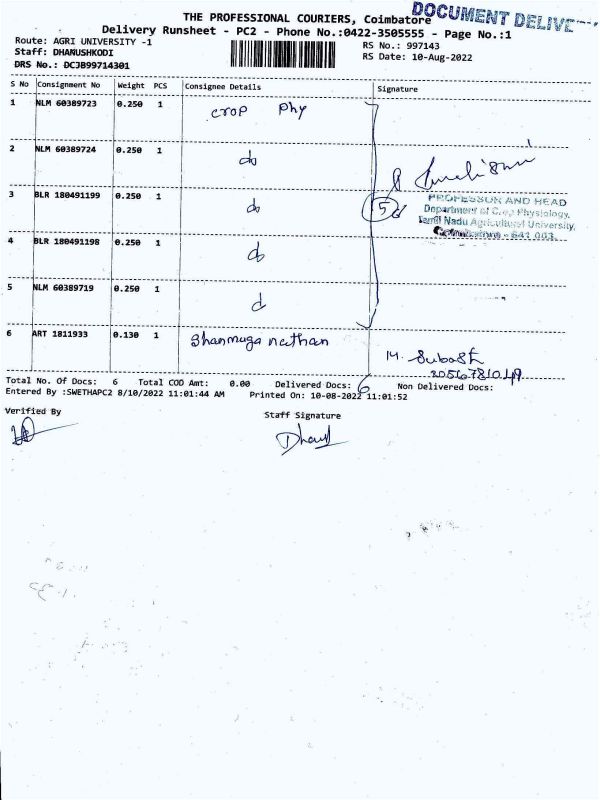 THE PROFESSIONAL COURIERS, Coimbatore
DOCUMENT DELIVE
Delivery Runsheet - PC2 - Phone No.:0422-3505555 - Page No.:1
Route: AGRI UNIVERSITY -1
RS No.: 997143
Staff: DHANUSHKODI
RS Date: 10-Aug-2022
DRS No.: DCJB99714301
S No Consignment No Weight PCS Consignee Details Signature
1 NLM 60389723 0.250 1 crop phy
2 NLM 60389724 0.250 1 do
3 BLR 180491199 0.250 1 do
5
PROFESSOR AND HEAD
Department of Crop Physiology,
Tamil Nadu Agricultural University,
Coimbatore - 641 003.
4 BLR 180491198 0.250 1 do
5 NLM 60389719 0.250 1 d
6 ART 1811933 0.130 1 Shanmuga nathan
M. Subash
Total No. Of Docs: 6 Total COD Amt: 0.00 Delivered Docs: 6 Non Delivered Docs:
Entered By :SWETHAPC2 8/10/2022 11:01:44 AM Printed On: 10-08-2022 11:01:52
Verified By
Staff Signature
Dhanus